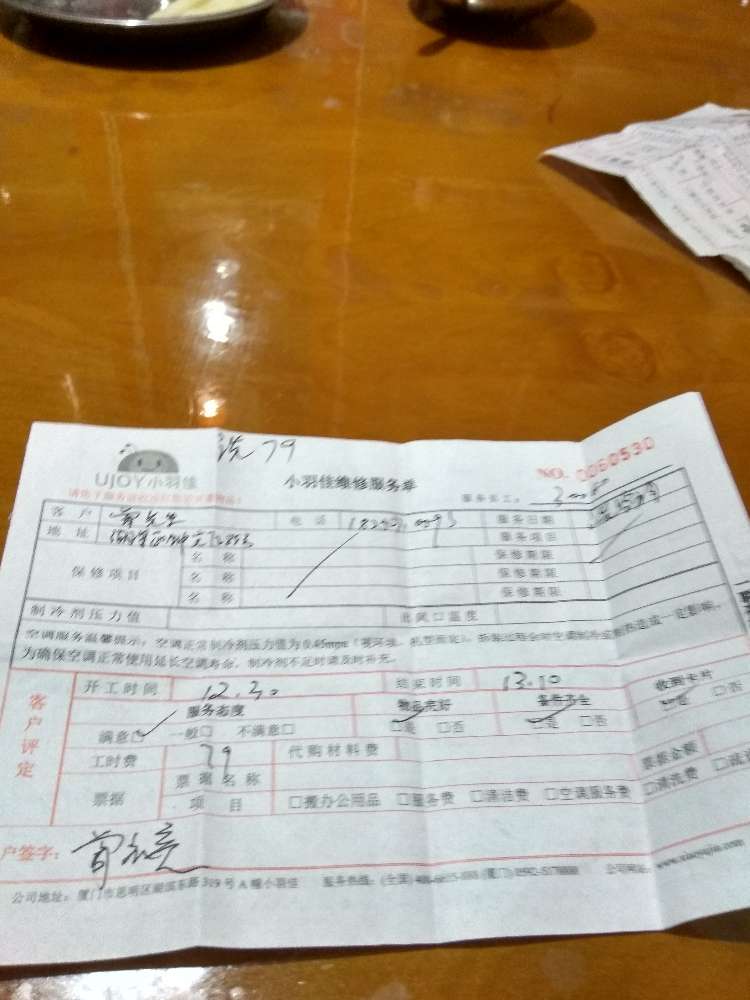 洗79
UJOY小羽佳
小羽佳维修服务单
NO. 0060530
服务员工:
客户 电话 服务日期
地址 服务项目
保修项目 名称 保修期限
名称 保修期限
名称 保修期限
制冷剂压力值 出风口温度
空调服务温馨提示:空调正常制冷剂压力值为0.45mpa(视环境、机型而定),拆装过程会对空调制冷或制热造成一定影响。
为确保空调正常使用延长空调寿命,制冷剂不足时请及时补充。
客户评定
开工时间 12.30 结束时间 13.10
服务态度 物品完好 备件齐全 收到卡片
满意□ 一般□ 不满意□ □是 □否 □是 □否 □是 □否
工时费 79 代购材料费
票据 票据名称 票据金额
项目 □搬办公用品 □服务费 □清洁费 □空调服务费 □清洗费
户签字:
公司地址:厦门市思明区湖滨东路319号A幢小羽佳 服务热线:(全国) (厦门) 公司网站: